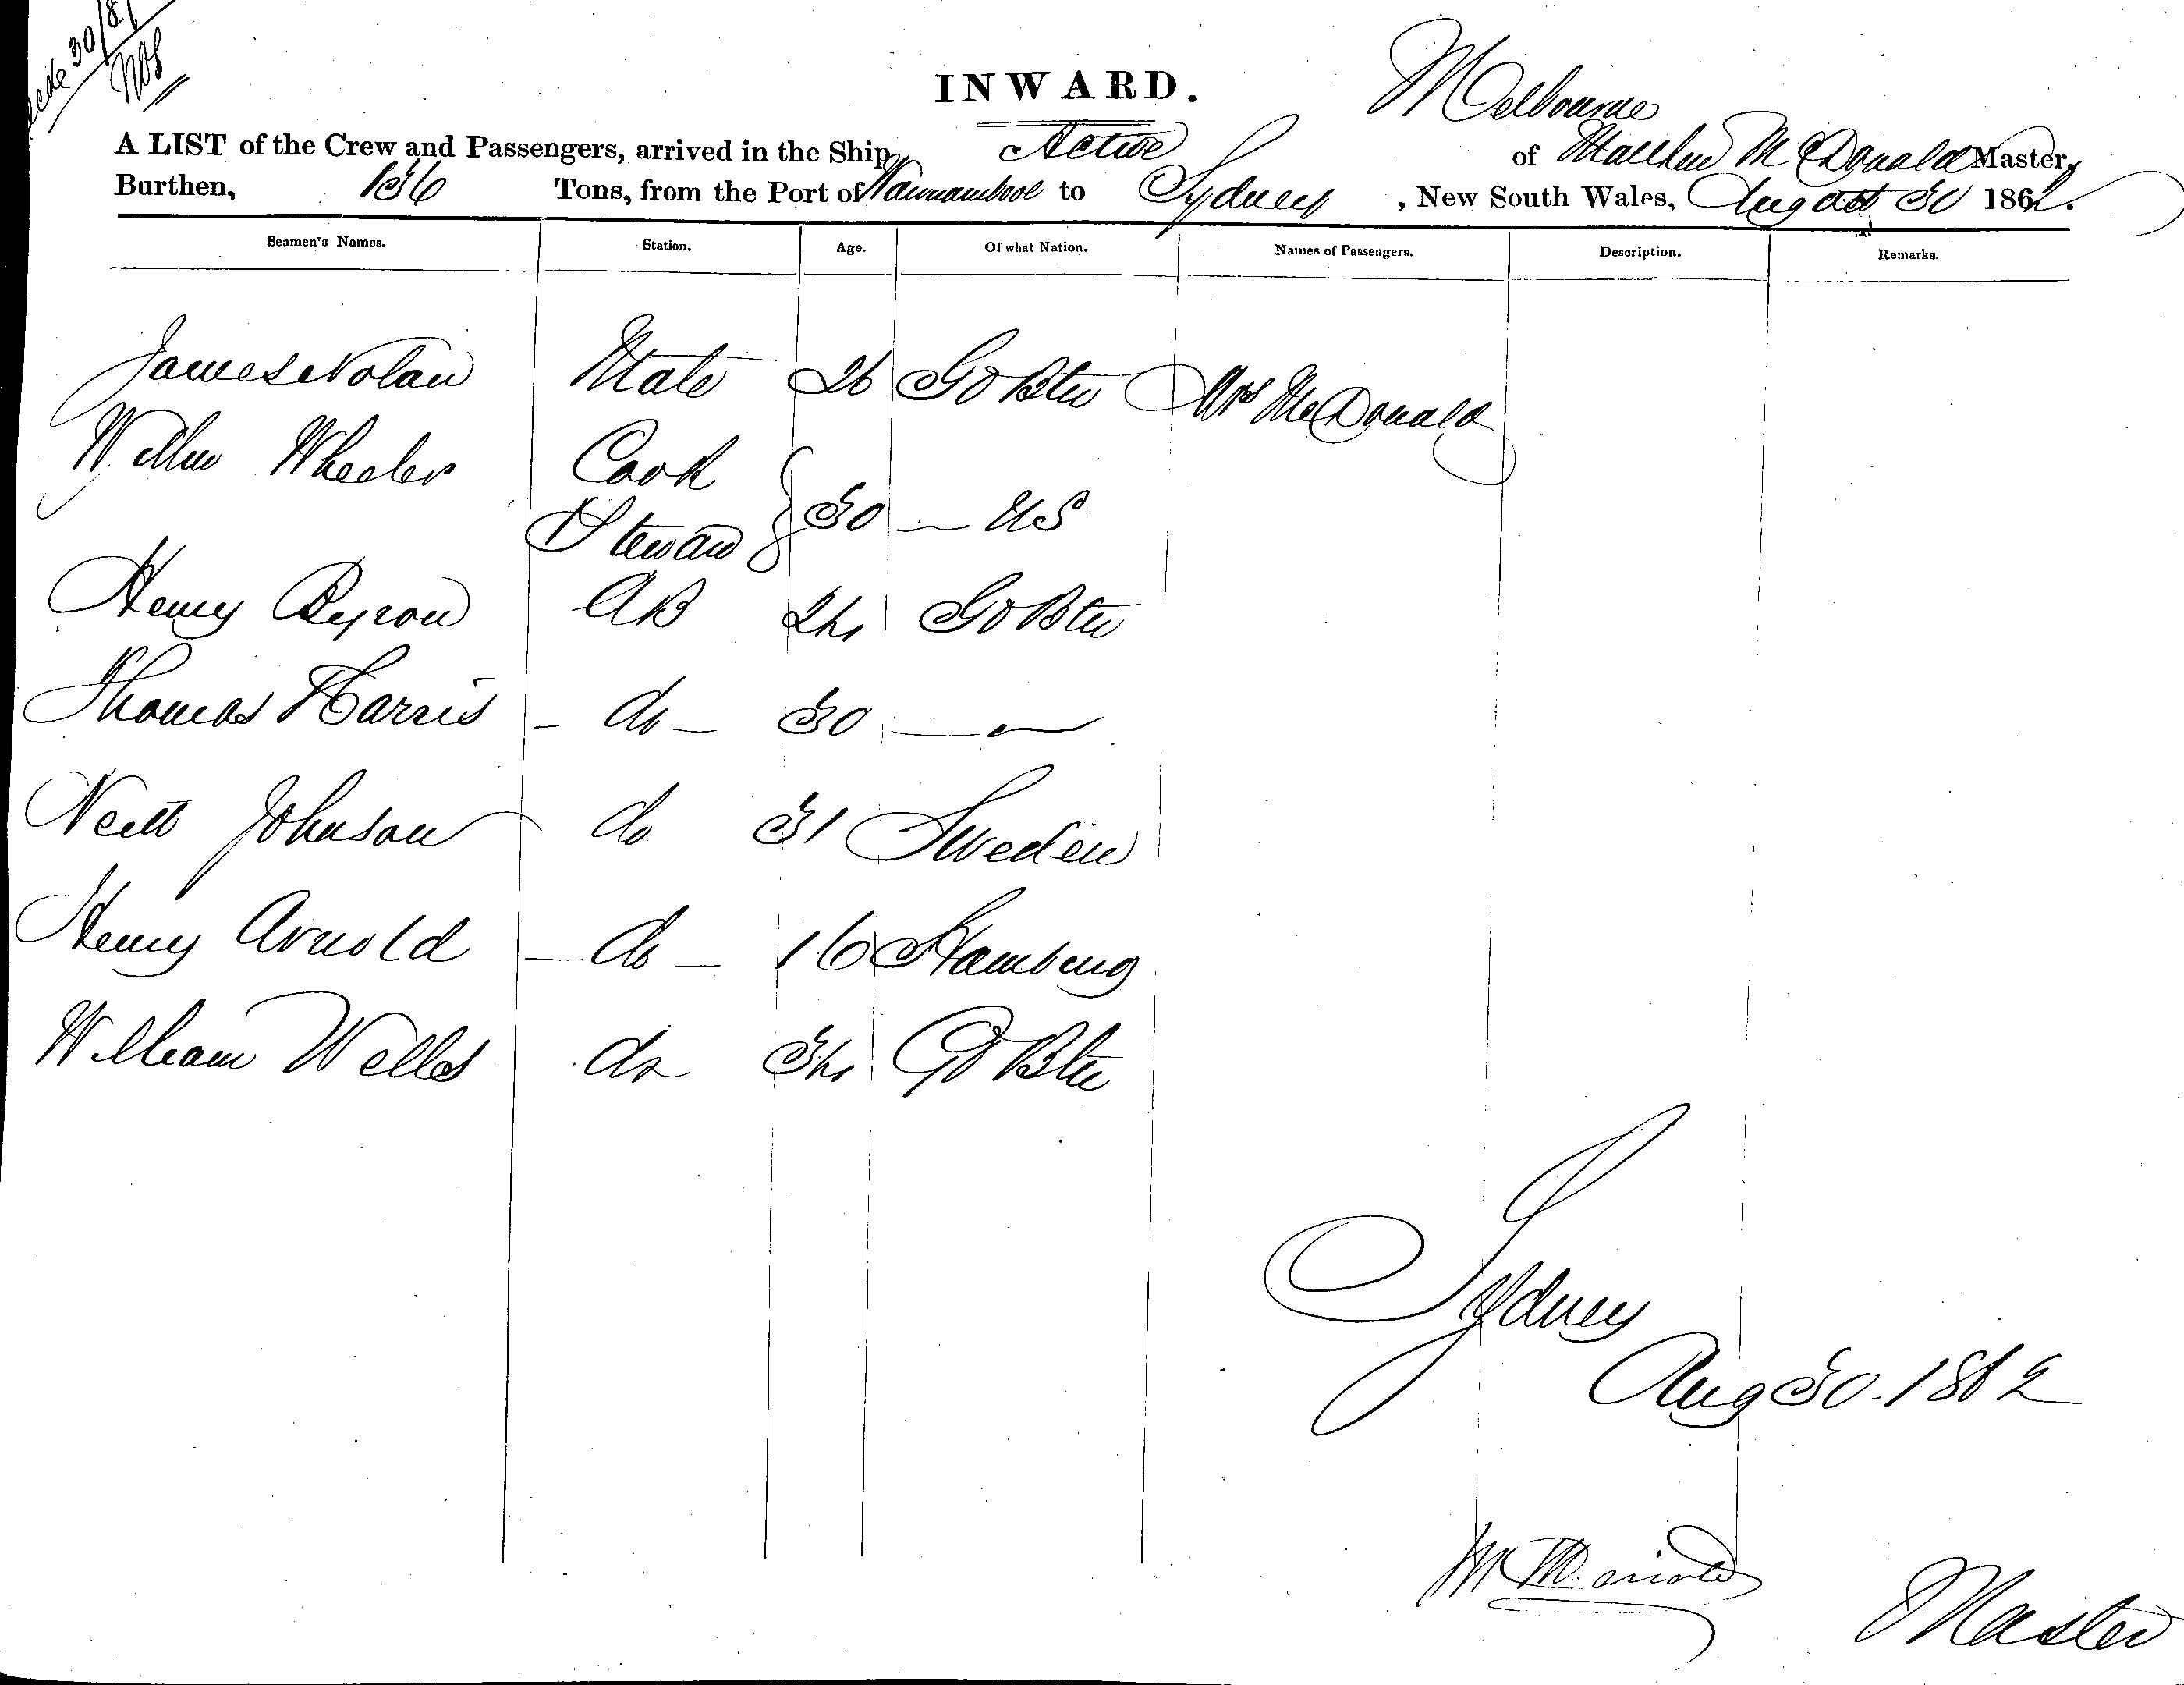 30/8/
INWARD.
Melbourne
A LIST of the Crew and Passengers, arrived in the Ship Active of Matthew McDonald Master,
Burthen, 136 Tons, from the Port of Warrnambool to Sydney, New South Wales, August 30 1862.
Seamen's Names. Station. Age. Of what Nation. Names of Passengers. Description. Remarks.
James Nolan Mate 26 Gt Btn Mrs McDonald
Willm Wheeler Cook
& Steward } 30 — US
Henry Byron AB 24 Gt Btn
Thomas Harris - do - 30 — "
Neill Johnson do 31 Sweden
Henry Arnold - do - 16 Hamburg
William Wells do 34 Gt Btn
Sydney
Aug 30. 1862
Master